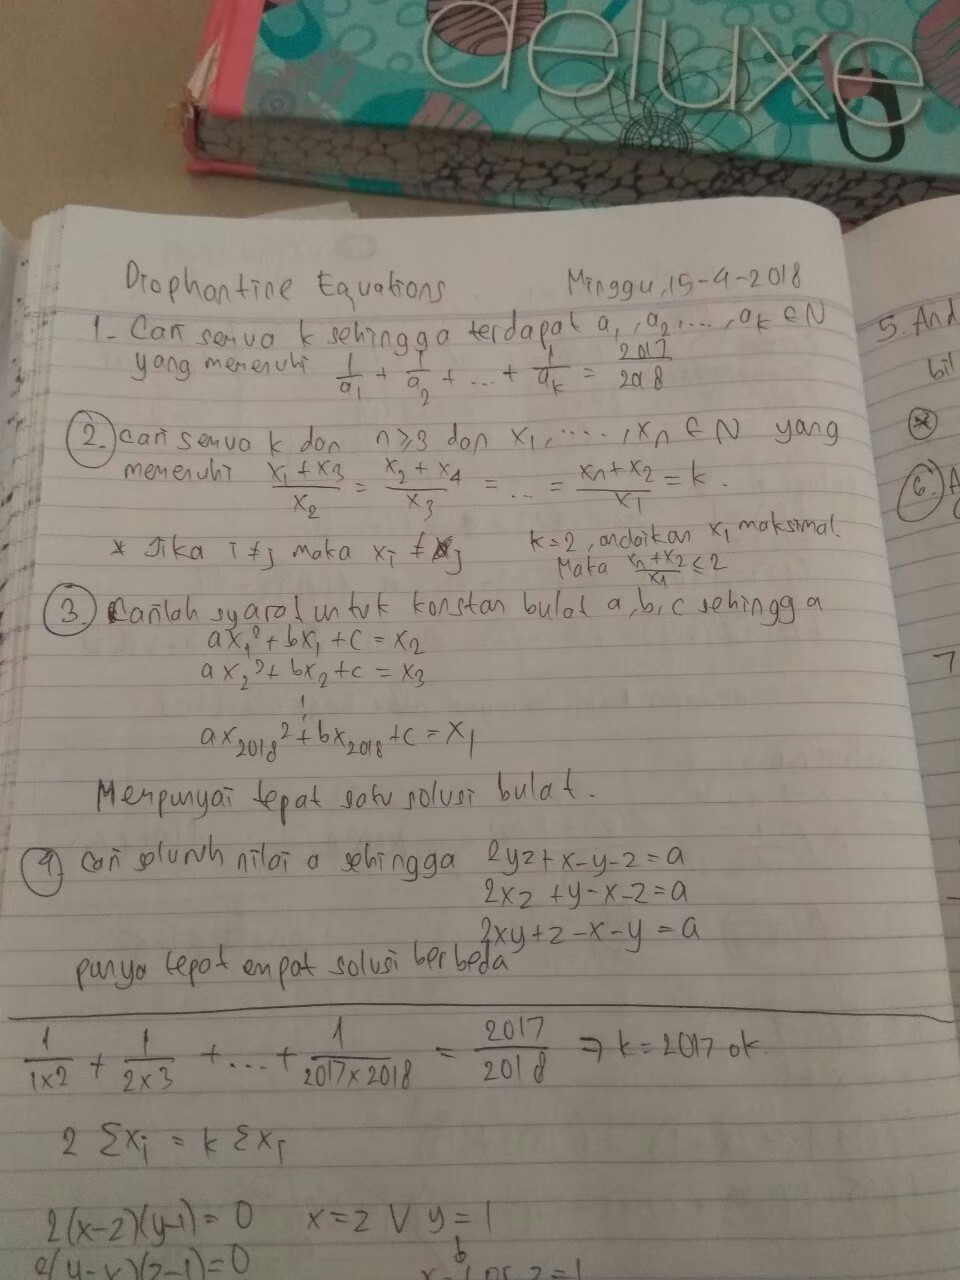 deluxe
Diophantine Equations Minggu, 15-4-2018
1. Cari semua k sehingga terdapat a₁, a₂, ..., aₖ ∈ N
yang memenuhi 1/a₁ + 1/a₂ + ... + 1/aₖ = 2017/2018
2. Cari semua k dan n ≥ 3 dan x₁, ....., xₙ ∈ N yang
memenuhi (x₁ + x₃)/x₂ = (x₂ + x₄)/x₃ = ... = (xₙ + x₂)/x₁ = k.
* Jika i ≠ j maka xᵢ ≠ xⱼ k=2, andaikan x₁ maksimal.
Maka (xₙ + x₂)/x₁ ≤ 2
3. Carilah syarat untuk konstan bulat a, b, c sehingga
ax₁² + bx₁ + c = x₂
ax₂² + bx₂ + c = x₃
⋮
ax₂₀₁₈² + bx₂₀₁₈ + c = x₁
Mempunyai tepat satu solusi bulat.
4. Cari seluruh nilai a sehingga 2yz + x - y - z = a
2xz + y - x - z = a
2xy + z - x - y = a
punya tepat empat solusi berbeda
1/(1x2) + 1/(2x3) + ... + 1/(2017x2018) = 2017/2018 ⇒ k = 2017 ok.
2 Σxᵢ = k Σxᵢ
2(x-z)(y-1) = 0 x = z V y = 1
2(y-x)(z-1) = 0 z = 1
5. And
bil
*
6. A
7